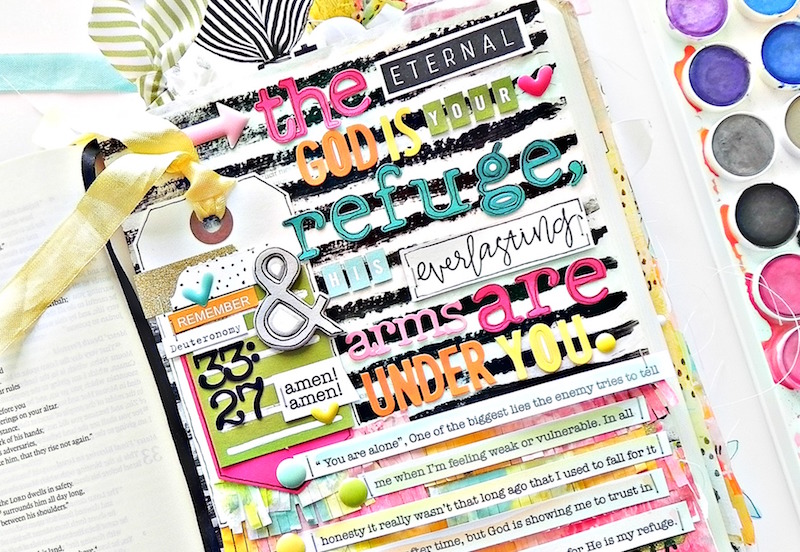 the ETERNAL
GOD IS YOUR
refuge,
& HIS everlasting
arms are
UNDER YOU.
REMEMBER
Deuteronomy
33:
27
amen!
amen!
"You are alone", One of the biggest lies the enemy tries to tell
me when I'm feeling weak or vulnerable. In all
honesty it really wasn't that long ago that I used to fall for it
after time, but God is showing me to trust in
for He is my refuge.
rules
before you
offerings on your altar.
work of his hands;
adversaries,
him, that they rise not again."
the LORD dwells in safety.
surrounds him all day long,
between his shoulders."